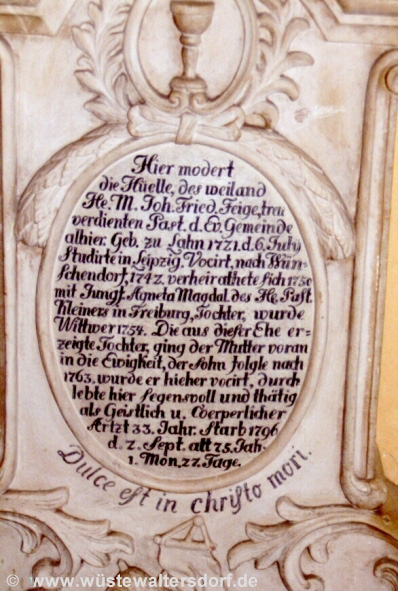 Hier modert
die Hüelle, des weiland
He. M. Joh. Fried. Feige, treu
verdienten Past. d. Ev. Gemeinde
alhier. Geb. zu Lahn 1721. d. 6. July
Studirte in Leipzig. Vocirt, nach Wün-
schendorf, 1742. verheirathete sich 1750
mit Jungf. Agneta Magdal. des He. Past.
Kleiners in Freiburg, Tochter, wurde
Wittwer 1754. Die aus dieser Ehe er=
zeigte Tochter, ging der Mutter voran
in die Ewigkeit, der sohn folgte nach
1763. wurde er hieher vocirt, durch
lebte hier segensvoll und thätig
als Geistlich u. Coerperlicher
Artzt 33. Jahr. Starb 1796
d. 2. Sept. alt 75. Jah.
1. Mon. 27. Tage.
Dulce est in Christo mori.
© www.wüstewaltersdorf.de